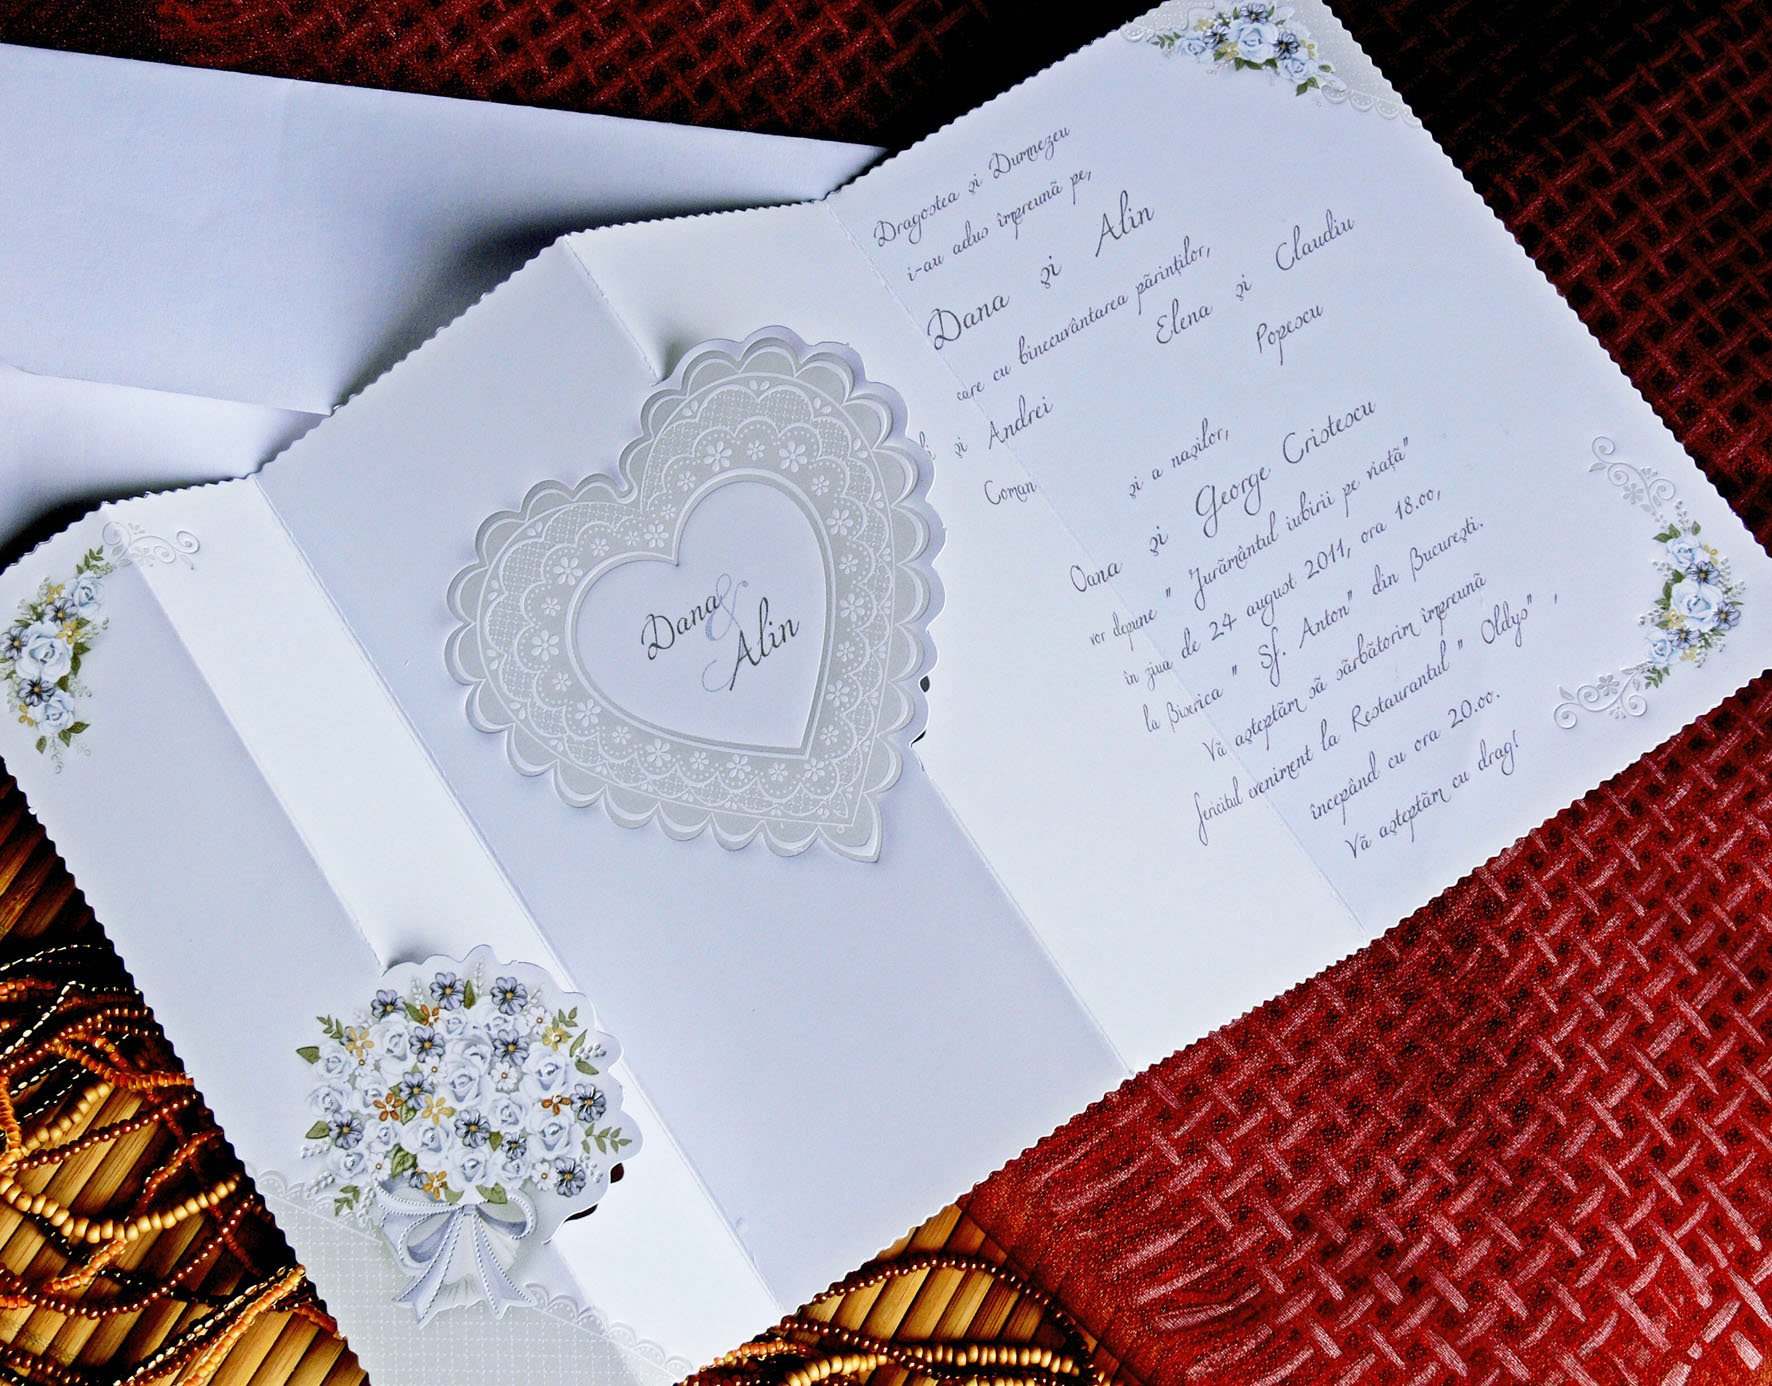 Dana
&
Alin
Dragostea şi Dumnezeu
i-au adus împreunã pe,
Dana şi Alin
care cu binecuvântarea pãrinţilor,
şi Andrei
Coman
Elena şi Claudiu
Popescu
şi a naşilor,
Oana şi George Cristescu
vor depune " Jurãmântul iubirii pe viaţã"
în ziua de 24 august 2011, ora 18.00,
la Biserica " Sf. Anton" din Bucureşti.
Vã aşteptãm sã sãrbãtorim împreunã
fericitul eveniment la Restaurantul " Oldys" ,
începând cu ora 20.00.
Vã aşteptãm cu drag!